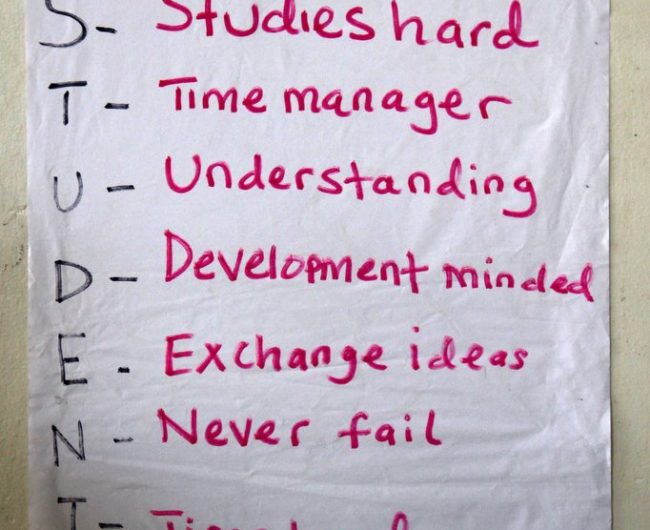 S- Studies hard
T- Time manager
U- Understanding
D- Development minded
E- Exchange ideas
N- Never fail
T-